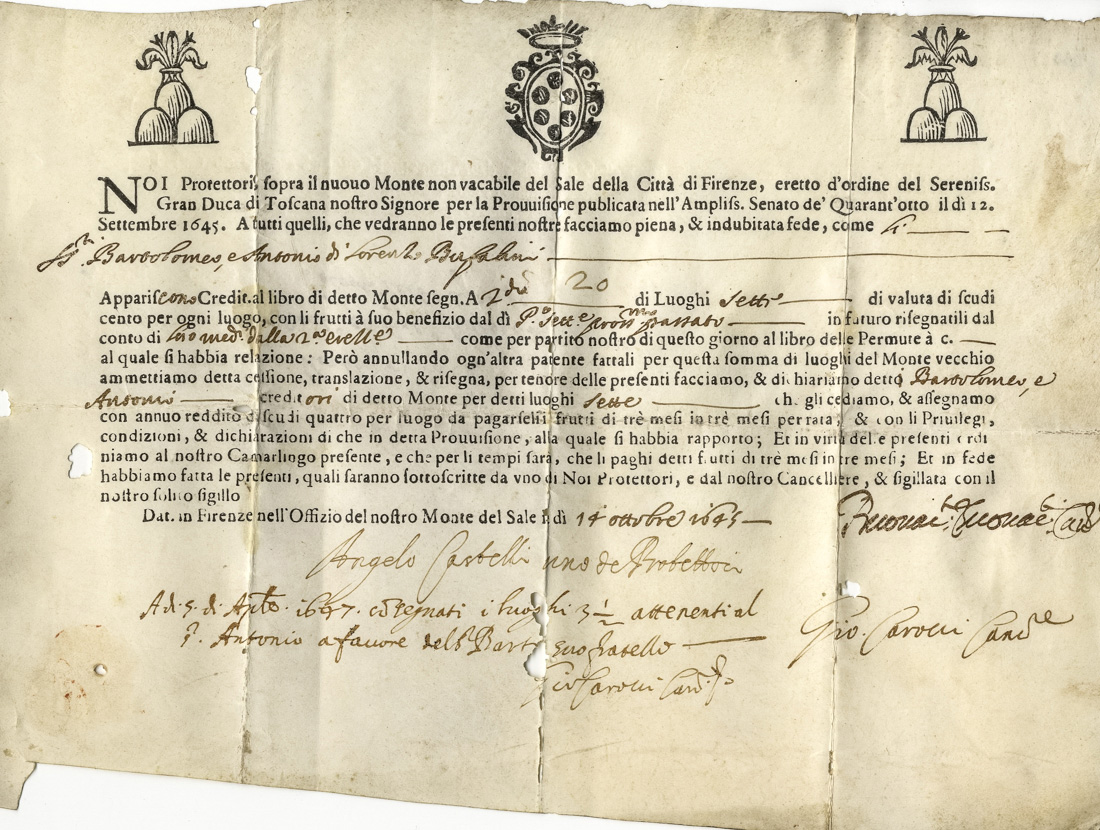 NOI Protettori, sopra il nuouo Monte non vacabile del Sale della Città di Firenze, eretto d'ordine del Sereniss.
Gran Duca di Toscana nostro Signore per la Prouuisione publicata nell'Ampliss. Senato de' Quarant'otto il dì 12.
Settembre 1645. A tutti quelli, che vedranno le presenti nostre facciamo piena, & indubitata fede, come
Bartolomeo, e Antonio di Lorenzo
Appariscono Credit. al libro di detto Monte segn. A 20 di Luoghi sette di valuta di scudi
cento per ogni luogo, con li frutti à suo benefizio dal dì P.º sett.e pross.mo passato in futuro risegnatili dal
conto di loro med. dalla come per partito nostro di questo giorno al libro delle Permute à c.
al quale si habbia relazione: Però annullando ogn'altra patente fattali per questa somma di luoghi del Monte vecchio
ammettiamo detta cessione, translazione, & risegna, per tenore delle presenti facciamo, & dichiariamo detti Bartolomeo, e
Antonio creditori di detto Monte per detti luoghi sette ch. gli cediamo, & assegnamo
con annuo reddito di scudi quattro per luogo da pagarseli i frutti di trè mesi in trè mesi per rata; & con li Priuilegi,
condizioni, & dichiarazioni di che in detta Prouuisione, alla quale si habbia rapporto; Et in virtù delle presenti ordi
niamo al nostro Camarlingo presente, e che per li tempi sarà, che li paghi detti frutti di trè mesi in tre mesi; Et in fede
habbiamo fatta le presenti, quali saranno sottoscritte da vno di Noi Protettori, e dal nostro Cancelliere, & sigillata con il
nostro solito sigillo
Dat. in Firenze nell'Offizio del nostro Monte del Sale dì 14 ottobre 1645
Angelo Castelli uno de Protettori
A di 5. di 1647. consegnati i luoghi 3 1/2 attenenti al
Antonio a fauore del Bart. suo fratello
Gio. Carocci Canc.re
Gio Carocci Canc.